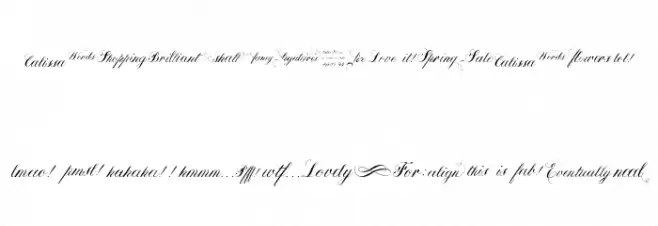 Calissa Words Shopping Brilliant shall fancy ligatures for Love it! Spring Sale Calissa Words flowers lol!
lmcao! pmsl! hahaha!! hmmm... Pfff! wtf... Lovely For: align this is fab! Eventually need